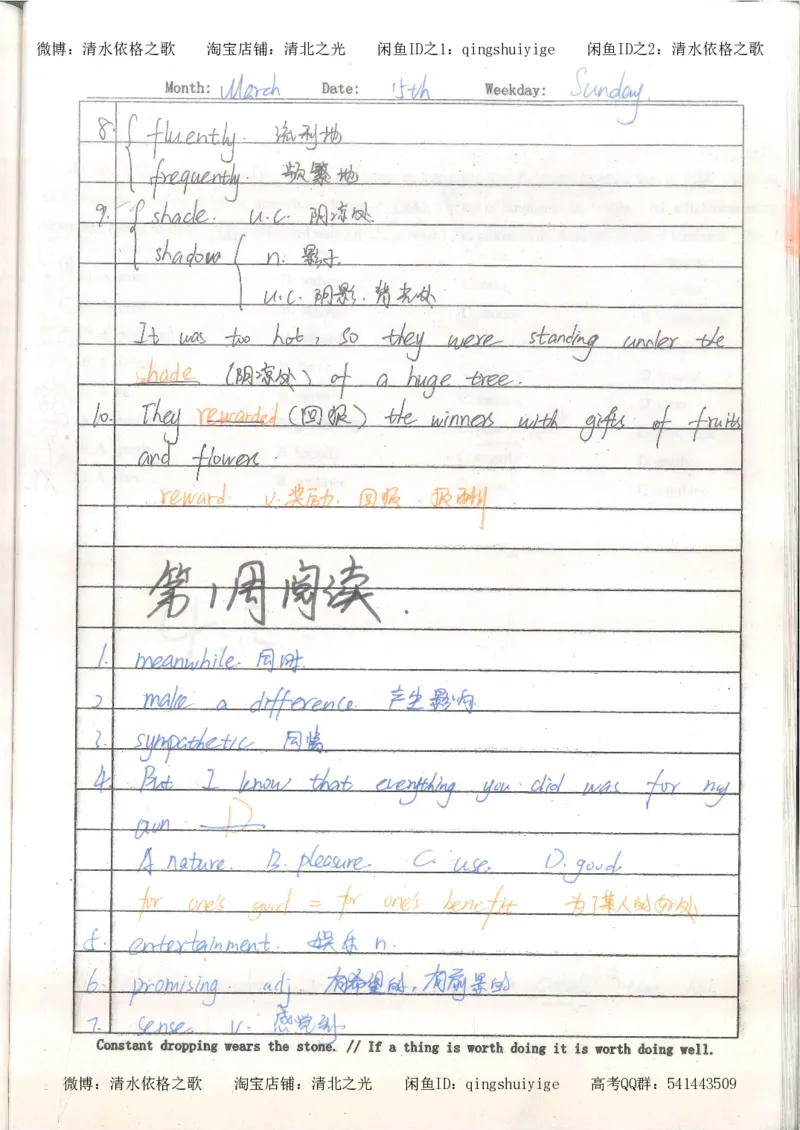 微博：清水依格之歌 淘宝店铺：清北之光 闲鱼ID之1：qingshuiyige 闲鱼ID之2：清水依格之歌
Month: March Date: 15th Weekday: Sunday.
8. fluently. 流利地
frequently. 频繁地
9. shade. u.c. 阴凉处
shadow n. 影子
u.c. 阴影. 背光处
It was too hot, so they were standing under the
shade (阴凉处) of a huge tree.
10. They rewarded (回报) the winners with gifts of fruits
and flowers.
reward. v. 奖励. 回报. 报酬
第1周阅读.
1. meanwhile. 同时.
2 make a difference. 产生影响
3. sympathetic 同情
4. But I know that everything you did was for my
own D
A nature. B. pleasure. C. use. D. good.
for one's good = for one's benefit 为了某人的好处
5. entertainment. 娱乐 n.
6. promising adj 有希望的, 有前景的
7. sense v. 感觉到
Constant dropping wears the stone. // If a thing is worth doing it is worth doing well.
微博：清水依格之歌 淘宝店铺：清北之光 闲鱼ID：qingshuiyige 高考QQ群：541443509